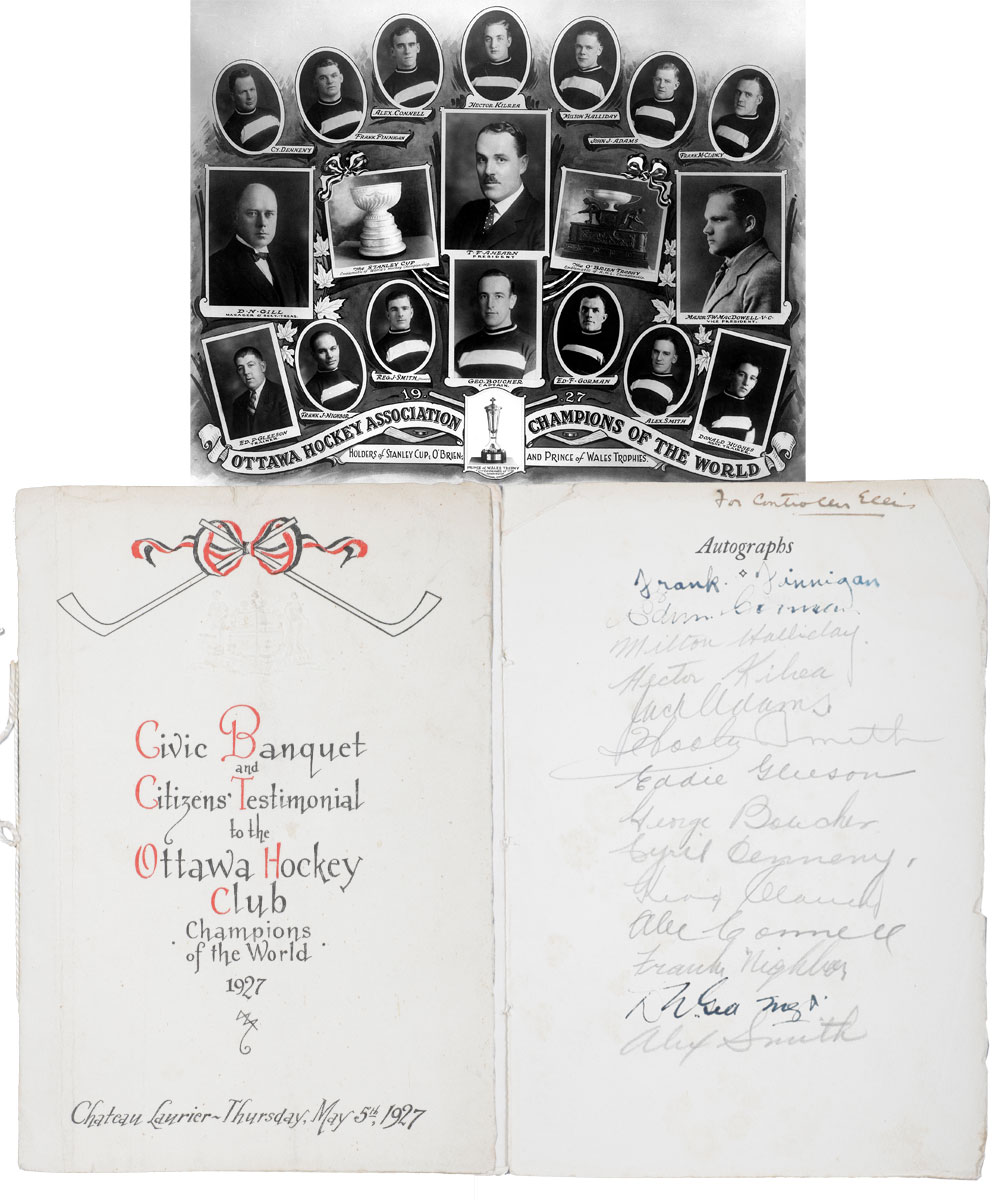 HECTOR KILREA
ALEX. CONNELL
MILTON HALLIDAY
FRANK FINNIGAN
JOHN J. ADAMS
CY. DENNENY
FRANK M<sup>c</sup>CLANCY
T. F. AHEARN
PRESIDENT
THE STANLEY CUP
THE O'BRIEN TROPHY
D. N. GILL
MANAGER & SECY.-TREAS.
MAJOR T.W. MACDOWELL-V-C-
VICE PRESIDENT.
REG. J. SMITH
GEO. BOUCHER
CAPTAIN.
ED. F. GORMAN
ED. P. GLEESON
TRAINER
FRANK J. NIGHBOR
ALEX. SMITH
DONALD HUGHES
19 27
OTTAWA HOCKEY ASSOCIATION CHAMPIONS OF THE WORLD
HOLDERS of STANLEY CUP, O'BRIEN, AND PRINCE of WALES TROPHIES.
PRINCE of WALES TROPHY
Civic Banquet
and
Citizens' Testimonial
to the
Ottawa Hockey
Club
Champions
of the World
1927
Chateau Laurier ~ Thursday, May 5th, 1927
For Controller Ellis
Autographs
Frank Finnigan
Edwin Gorman
Milton Halliday.
Hector Kilrea
Jack Adams
Hooley Smith
Eddie Gleeson
George Boucher
Cyril Denneny.
King Clancy
Alec Connell
Frank Nighbor
Alex Smith